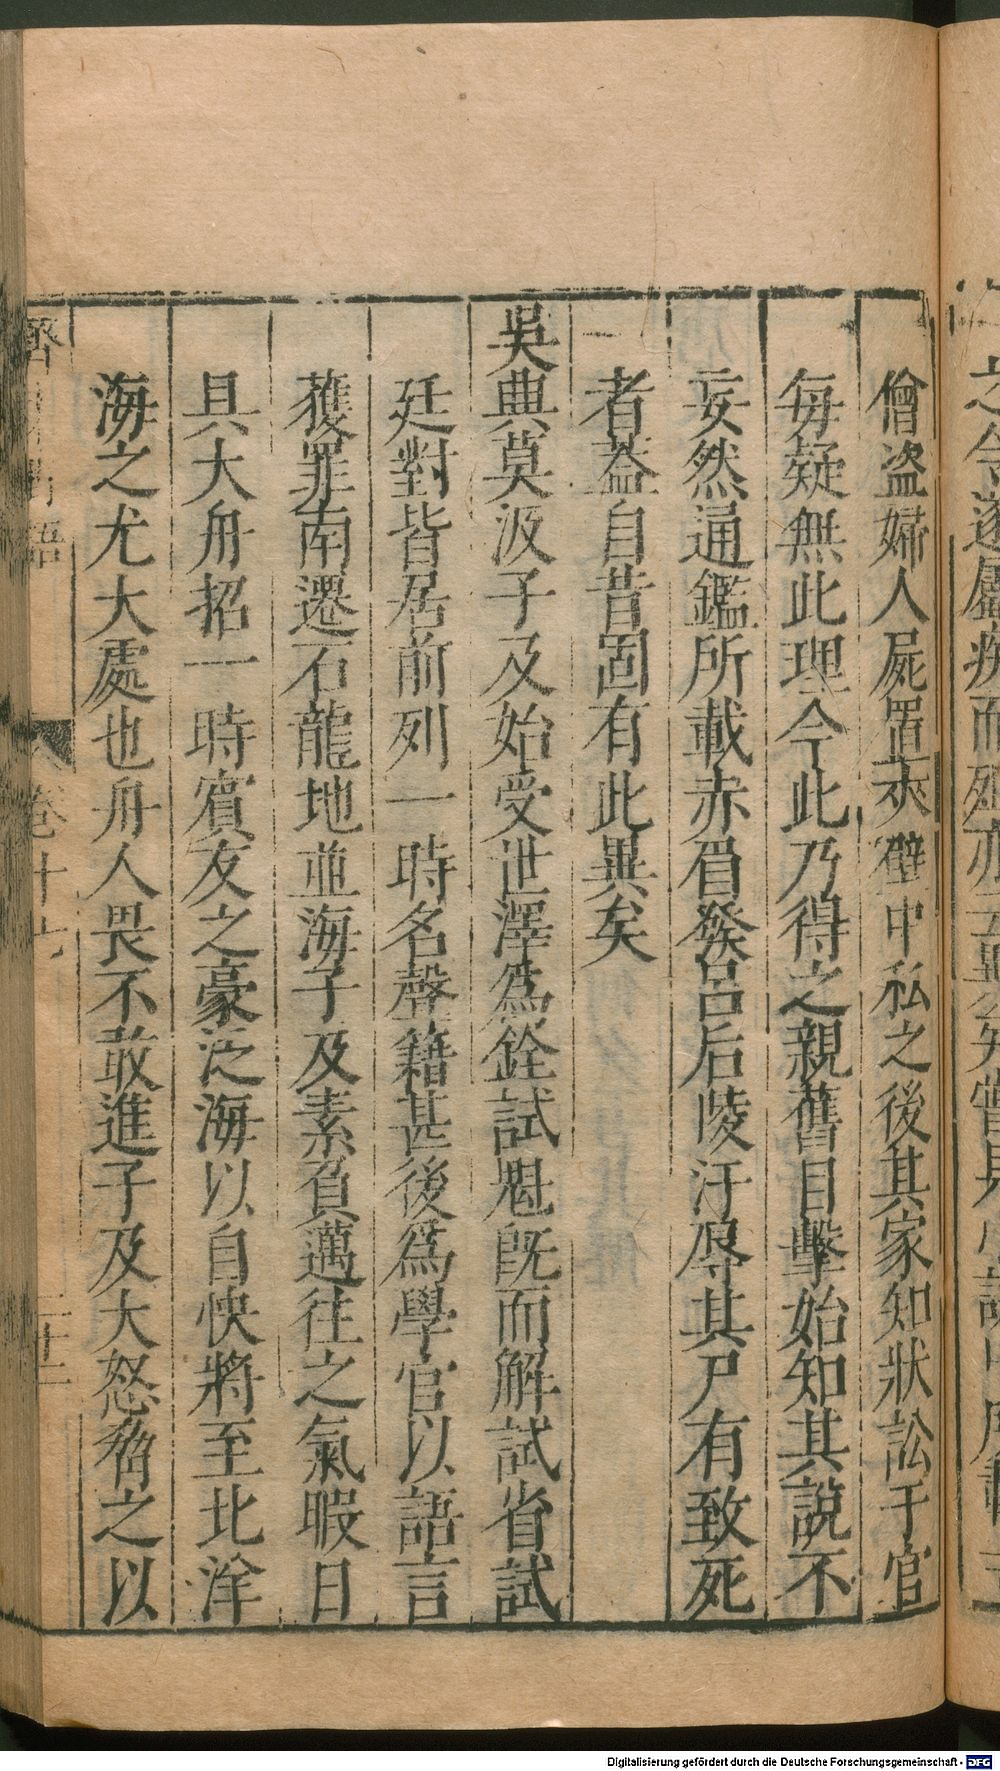 僧盗婦人屍置夾壁中私之後其家知狀訟于官
每疑無此理今此乃得之親舊目擊始知其說不
妄然通鑑所載赤眉發呂后陵汙辱其尸有致死
者葢自昔固有此異矣
吳興莫汲子及始受世澤爲銓試魁旣而解試省試
廷對皆居前列一時名聲籍甚後爲學官以語言
獲罪南遷石龍地並海子及素負邁往之氣暇日
具大舟招一時賓友之豪泛海以自快將至北洋
海之尤大處也舟人畏不敢進子及大怒脅之以
齊 語 卷十七 二十二
Digitalisierung gefördert durch die Deutsche Forschungsgemeinschaft - DFG